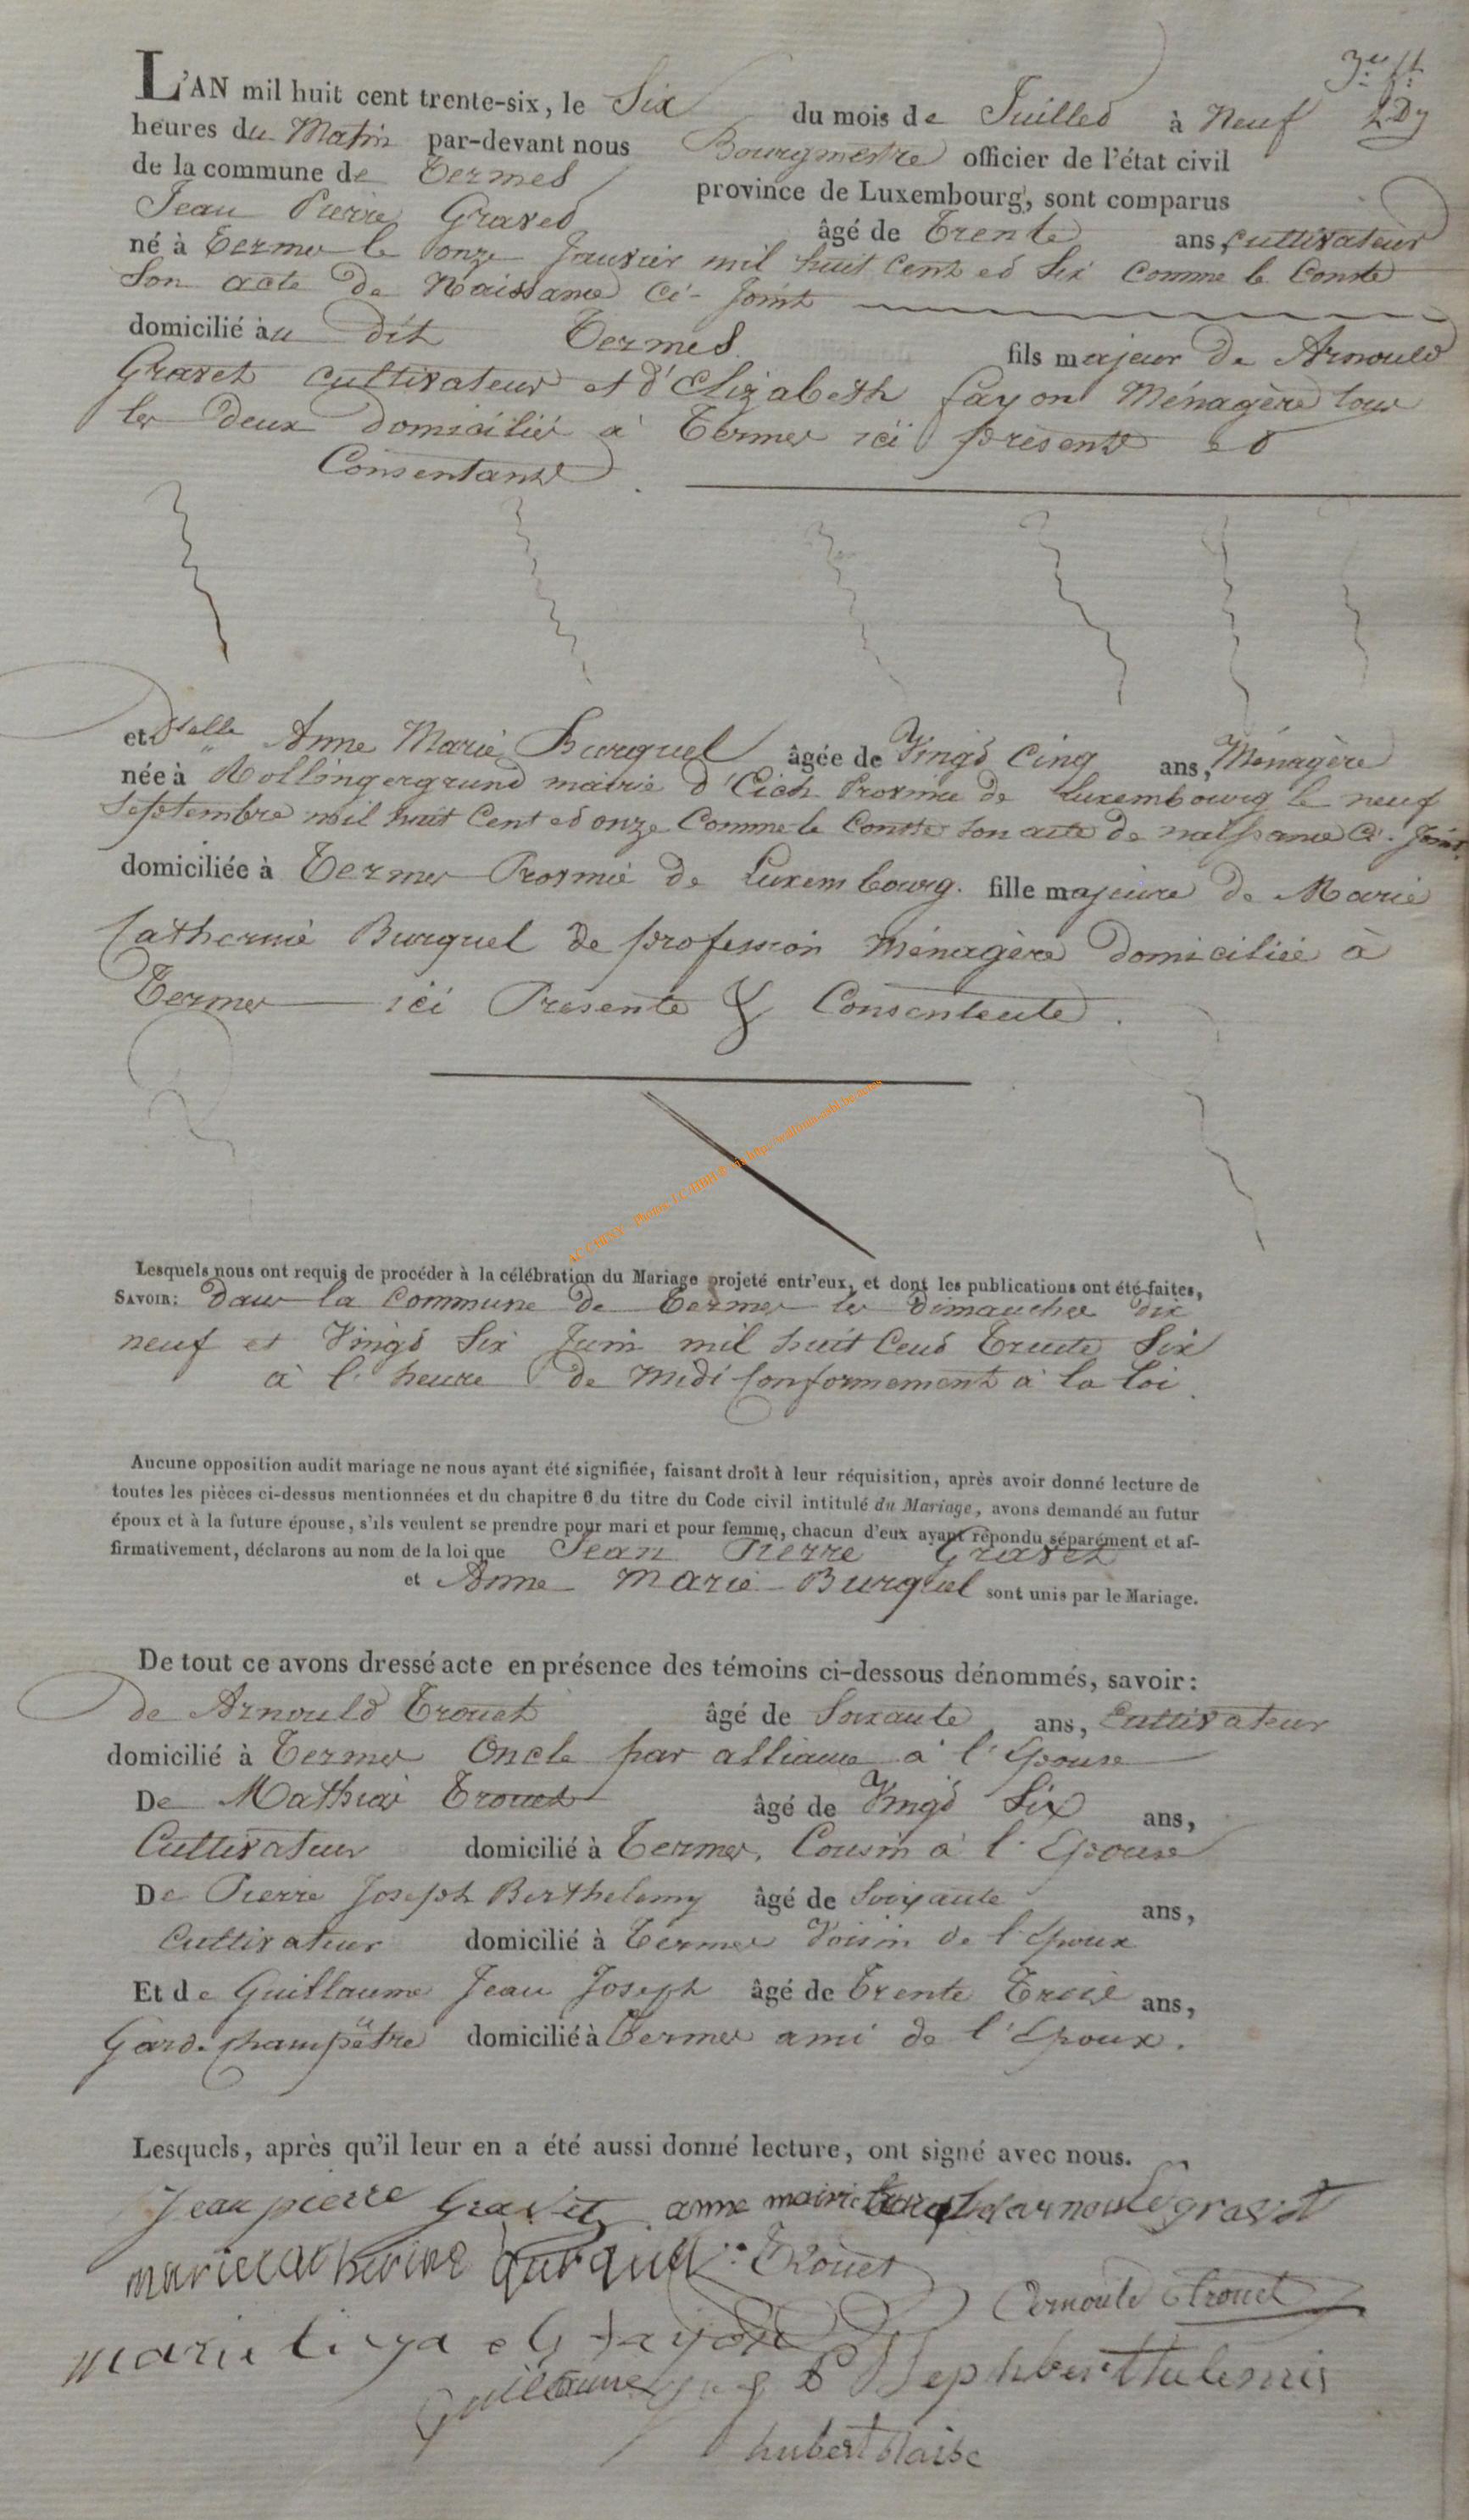 L'AN mil huit cent trente-six, le Six du mois de Juillet à Neuf
heures du Matin par-devant nous Bourgmestre officier de l'état civil
de la commune de Termes province de Luxembourg, sont comparus
Jean Pierre Gravet âgé de Trente ans, cultivateur
né à Termes le onze Janvier mil huit cent et Six comme le Conste
Son acte de Naissance ci-Joint
domicilié au dit Termes fils majeur de Arnould
Gravet cultivateur et d'Elizabeth fayon Ménagère tous
les deux domiciliés à Termes ici présents et
Consentants
et Dselle Anne Marie Burquel âgée de Vingt Cinq ans, Ménagère
née à Rollingergrund mairie d'Eich Province de Luxembourg le neuf
Septembre mil huit Cent et onze Comme le Conste son acte de naissance ci-Joint
domiciliée à Termes Province de Luxembourg. fille majeure de Marie
Catherine Burquel de profession Ménagère domiciliée à
Termes ici Présente & Consentente.
Lesquels nous ont requis de procéder à la célébration du Mariage projeté entr'eux, et dont les publications ont été faites,
SAVOIR: dans la Commune de Termes les dimanches dix
neuf et Vingt Six Juin mil huit Cent Trente Six
à l'heure de midi conformement à la loi.
Aucune opposition audit mariage ne nous ayant été signifiée, faisant droit à leur réquisition, après avoir donné lecture de
toutes les pièces ci-dessus mentionnées et du chapitre 6 du titre du Code civil intitulé du Mariage, avons demandé au futur
époux et à la future épouse, s'ils veulent se prendre pour mari et pour femme, chacun d'eux ayant répondu séparément et af-
firmativement, déclarons au nom de la loi que Jean Pierre Gravet
et Anne Marie Burquel sont unis par le Mariage.
De tout ce avons dressé acte en présence des témoins ci-dessous dénommés, savoir:
de Arnould Trouet âgé de Soixante ans, Cultivateur
domicilié à Termes Oncle par alliance à l'Epouse
De Mathias Trouet âgé de Vingt Six ans,
Cultivateur domicilié à Termes, Cousin à l'Epouse
De Pierre Joseph Berthelemy âgé de Soixante ans,
Cultivateur domicilié à Termes Voisin de l'Epoux
Et de Guillaume Jean Joseph âgé de Trente Trois ans,
Garde champêtre domicilié à Termes ami de l'Epoux.
Lesquels, après qu'il leur en a été aussi donné lecture, ont signé avec nous.
Jean pierre Gravet anne marie burquel arnould gravet
marie catherine burquel Trouet
Arnould Trouet
marie fayon
Guillaume
hubert